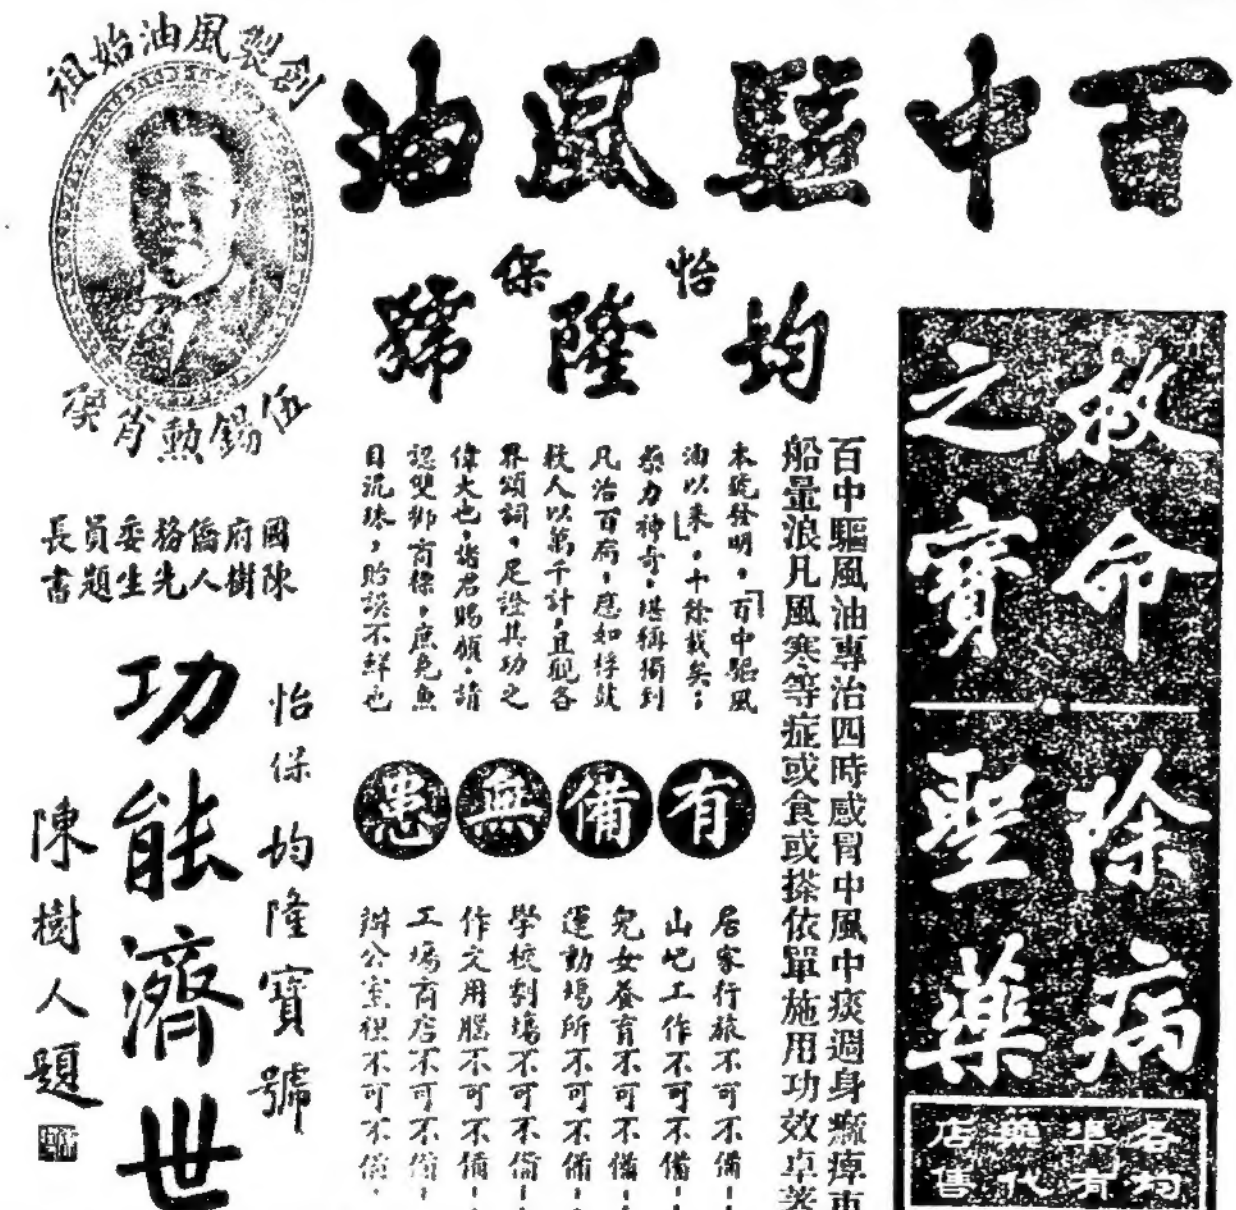 百中驅風油
怡保
均隆號
救命之寶
除病聖藥
各埠藥店
均有代售
百中驅風油專治四時感冒中風中痰週身痲痺車
船暈浪凡風寒等症或食或搽依單施用功效卓著
本號發明。「百中驅風
油」以來。十餘載矣；
藥力神奇。堪稱獨到
凡治百病，應如桴鼓
救人以萬千計，且觀各
界頌詞。足證其功之
偉大也。諸君賜顧。請
認雙獅商標。庶免魚
目混珠，貽誤不鮮也
有備無患
居家行旅不可不備！
山岜工作不可不備！
兒女養育不可不備！
運動場所不可不備！
學校劇場不可不備！
作文用腦不可不備！
工場商店不可不備！
辦公室裡不可不備，
創製風油始祖
伍錫勲肖影
國府僑務委員長
陳樹人先生題書
怡保均隆寶號
功能濟世
陳樹人題